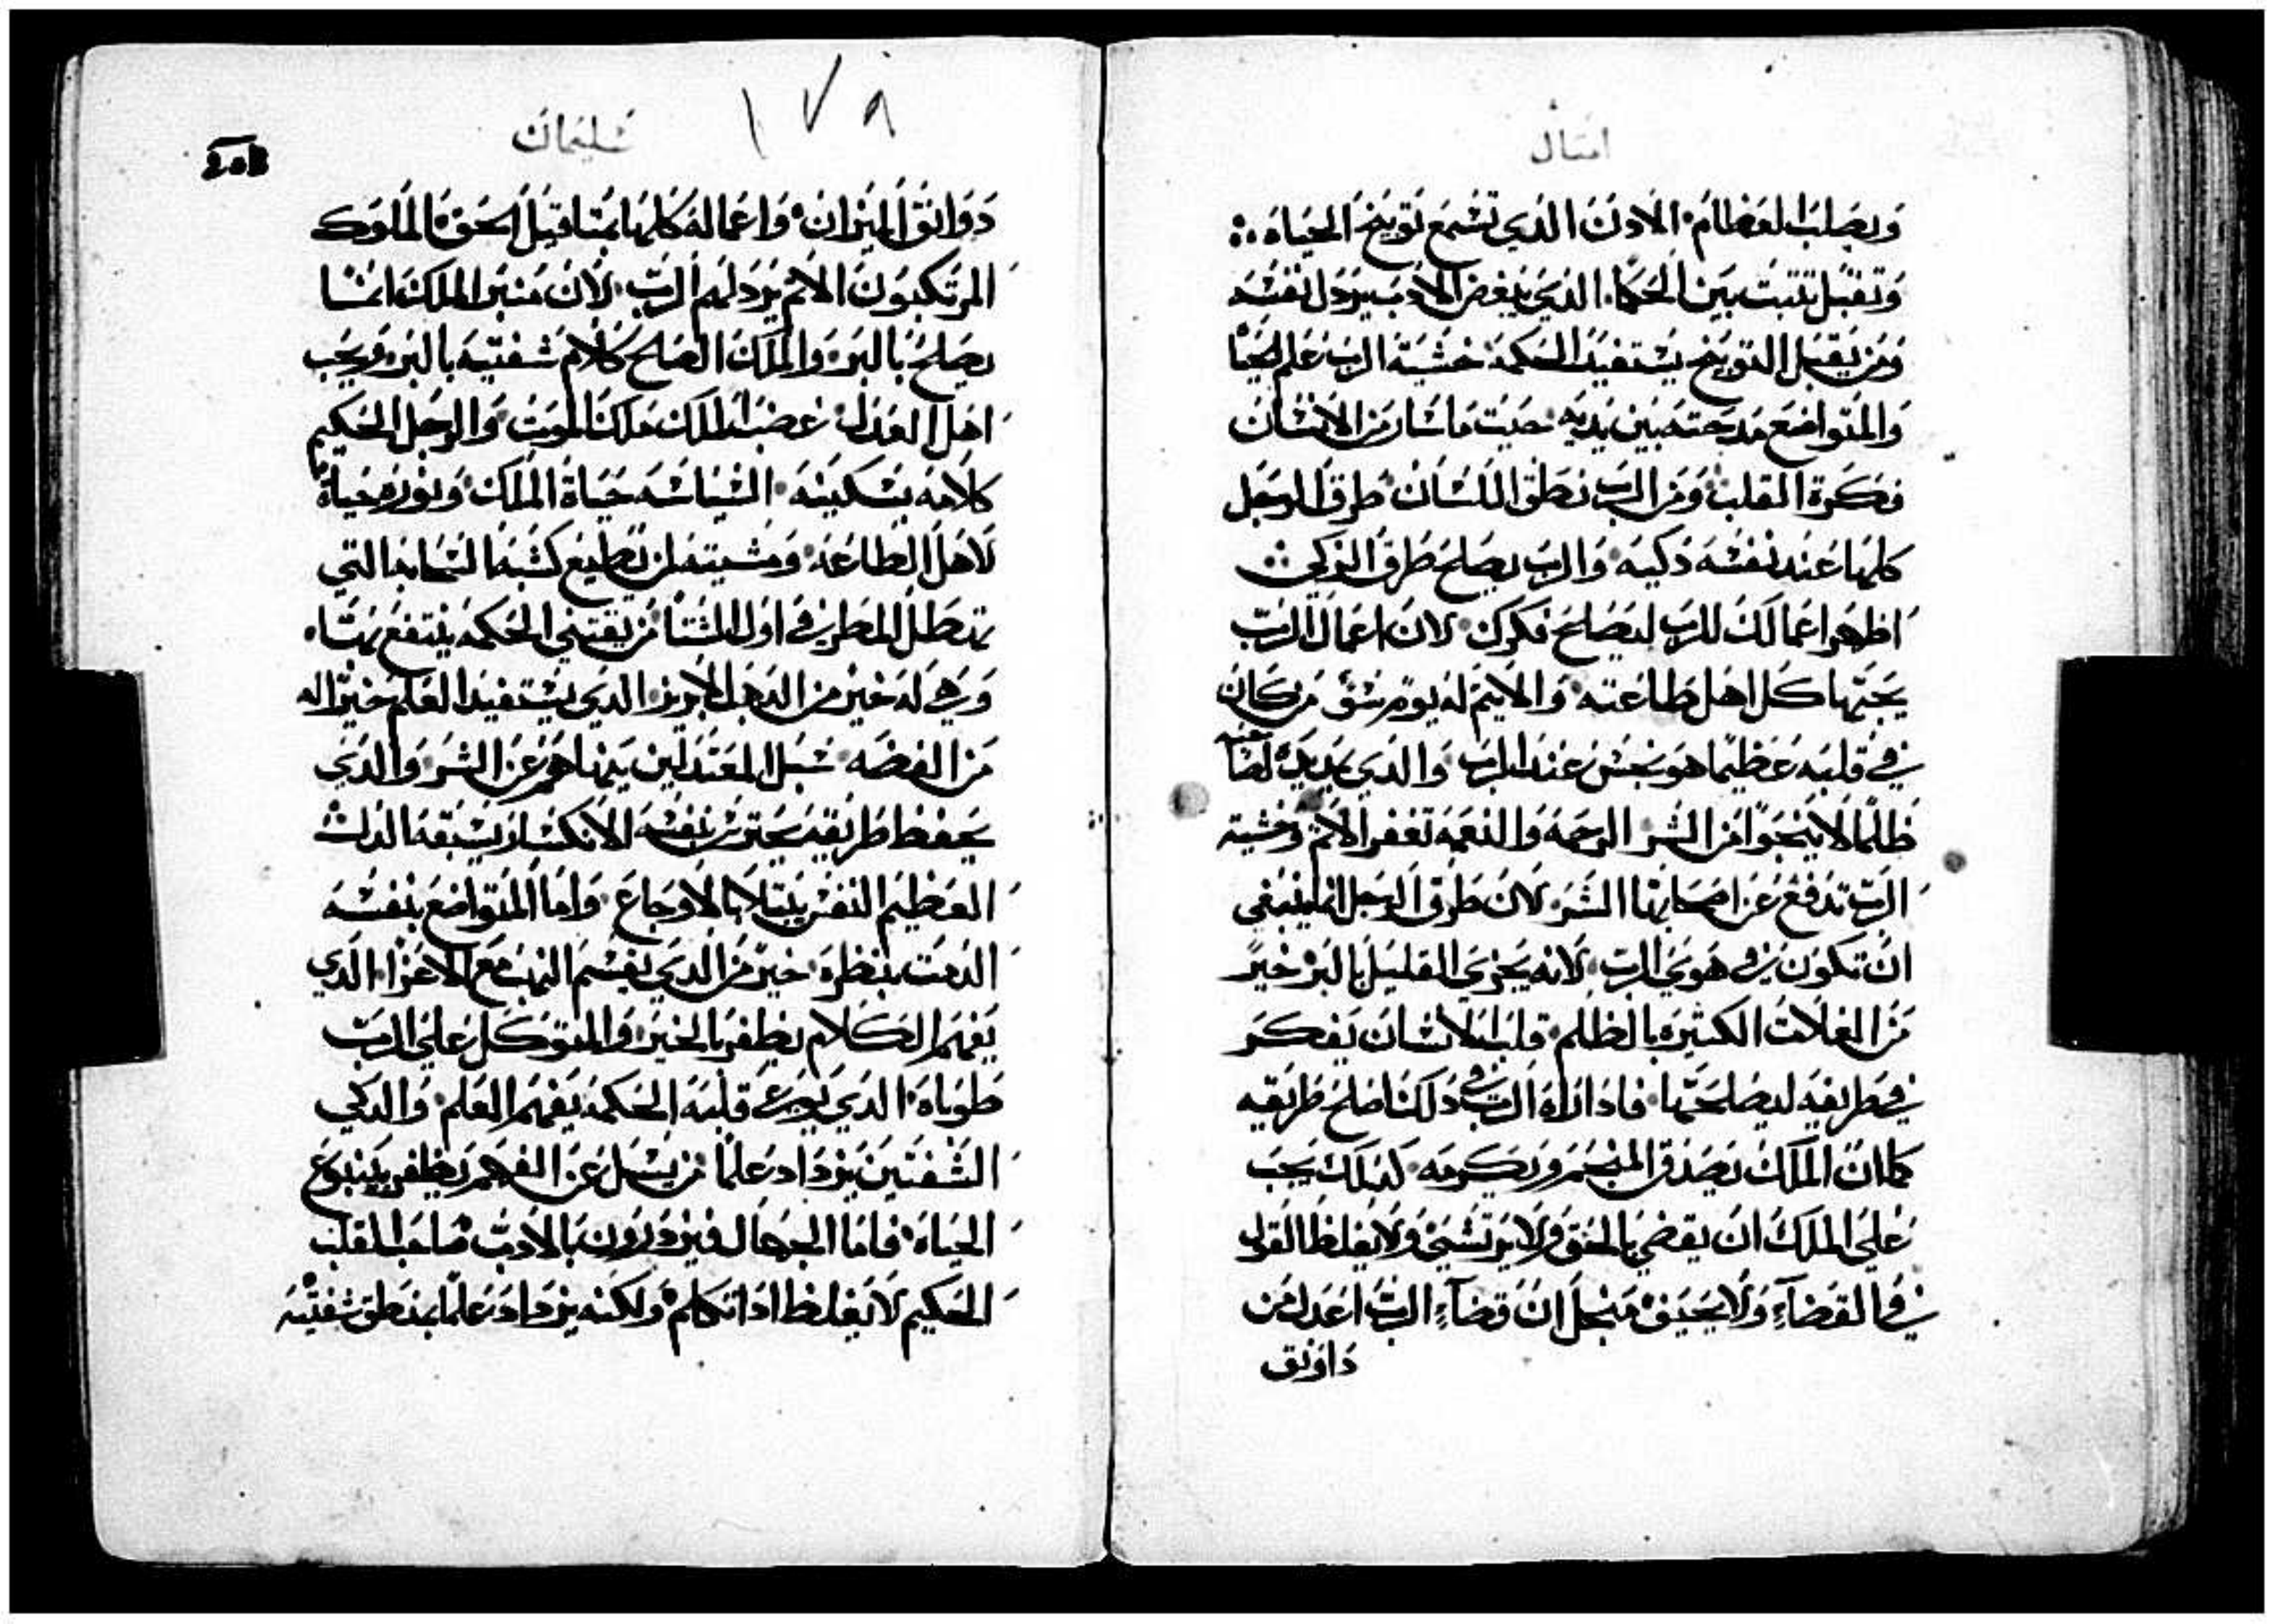 امثال
ويصلب العظام۰ الادن الذي تسمع توبيخ الحياه ⁘
وتقبل تتبت بين الحكما۰ الذي يبغض الادب يردل نفسه
ومن يقبل التوبيخ يستفيد الحكمة۰ خشية الرب علم الحيا
والمتواضع مدحته بين يديه۰ حيت ماسار من الانسان
فكرة القلب۰ ومن الرب نطق اللسان۰ طرق الرجل
كلها عند نفسه دكيه۰ والرب يصلح طرق الزكي ⁘
اظهر اعمالك للرب ليصلح فكرك۰ لان اعمال الرب
يحبها كل اهل طاعته۰ والاتيم له يوم سو۰ من كان
في قلبه عظيما هو نجس عند الرب۰ والدي يمد يده لصاحبه
ظلما لا ينجوا من الشر۰ الرحمه والنعمه تغفر الاتم۰ وخشية
الرب تدفع عن اصحابها الشر۰ لان طرق الرجل انما ينبغي
ان تكون في هوى الرب۰ لانه يجزي القليل بالبر خير
من الغلات الكتيره بالظلم۰ قلب الانسان يفكر
في طريقه ليصلحها۰ فادا اراه الرب دلك اصلح طريقه
كما ان الملك يصدق المنجم ويكرمه۰ كدلك يجب
على الملك ان يقضي بالحق ولا يرتشي ولا يغلظ القول
في القضاء ولا يحيف من اجل ان قضاء الرب اعدل من
دوانق
سليمان
١٧٨
دوانق الميزان۰ واعماله كلها بمتاقيل الحق۰ الملوك
المرتكبون الاتم يردلهم الرب۰ لان منبر الملك انما
يصلح بالبر۰ والملك الصلح كلام شفتيه بالبر۰ ويحب
اهل العدل۰ غضب الملك ملك الموت۰ والرجل الحكيم
كلامه يسكينه۰ السياسه حياة الملك۰ ونوره حياة
لاهل الطاعه۰ ومشيته لمن يطيع كشبه السحابه التي
تهطل المطر في اول الشتا۰ من يقتني الحكمه ينتفع بها۰
وهي له خير من الدهب الابريز۰ الدي يستفيد العلم خير له
من الفضه۰ سبل المعتدلين يمنا هو عن الشر۰ والدي
يحفظ طريقه يحترس بنفسه۰ الانكسار يسبقه الدل
العظيم النفس يبتلا بالاوجاع۰ واما المتواضع بنفسه
الدمت بنظره۰ خير من الدي يقسم النهب مع الاعزا۰ الدي
يفهم الكلام يظفر بالخير۰ والمتوكل على الرب
طوباه۰ الدي يوعى قلبه الحكمه يفهم العلم۰ والدكي
الشفتين يزداد علما۰ من يسل عن الفهم يظفر بينبوع
الحياه۰ فاما الجهال فيزدرون بالادب۰ صاحب القلب
الحكيم لا يغلظ ادا تكلم۰ ولكنه يزداد علما بمنطق شفتيه